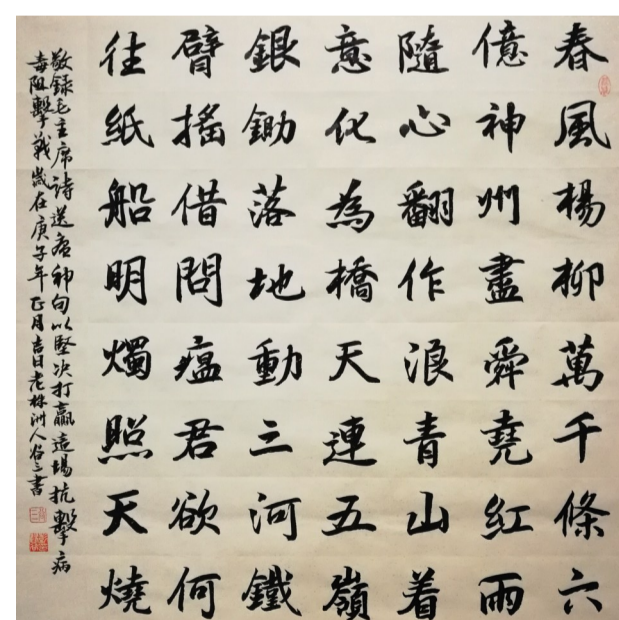 春風楊柳萬千條六
億神州盡舜堯紅雨
隨心翻作浪青山着
意化為橋天連五嶺
銀鋤落地動三河鐵
臂搖借問瘟君欲何
往紙船明燭照天燒
敬録毛主席詩送瘟神句以堅决打贏這場抗擊病
毒阻擊戰歲在庚子年正月吉日老林洲人谷三書